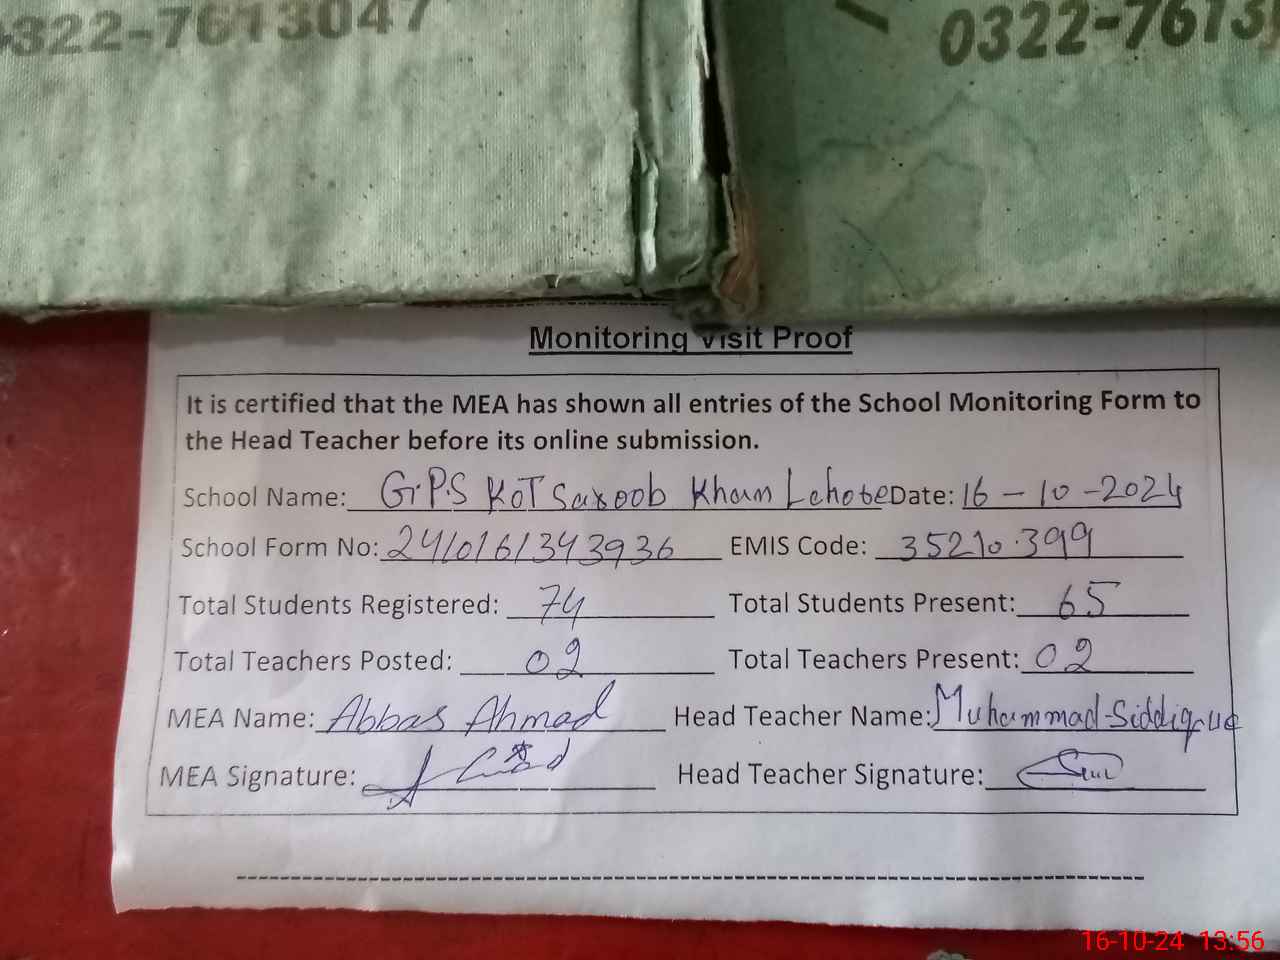 0322-7613047
0322-7613
Monitoring Visit Proof
It is certified that the MEA has shown all entries of the School Monitoring Form to
the Head Teacher before its online submission.
School Name: G.P.S KOT Saxoob Khan Lehore Date: 16-10-2024
School Form No: 2410161343936 EMIS Code: 35210399
Total Students Registered: 74 Total Students Present: 65
Total Teachers Posted: 02 Total Teachers Present: 02
MEA Name: Abbas Ahmad Head Teacher Name: Muhammad Siddique
MEA Signature: Head Teacher Signature:
16-10-24 13:56